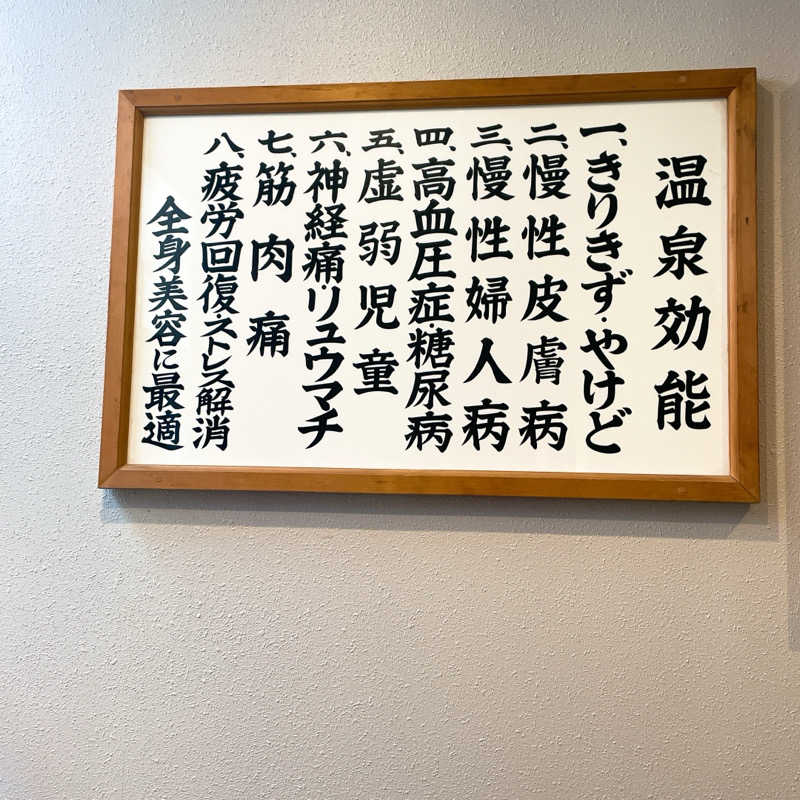 温泉効能
一、きりきず・やけど
二、慢性皮膚病
三、慢性婦人病
四、高血圧症・糖尿病
五、虚弱児童
六、神経痛・リュウマチ
七、筋肉痛
八、疲労回復・ストレス解消
全身美容に最適